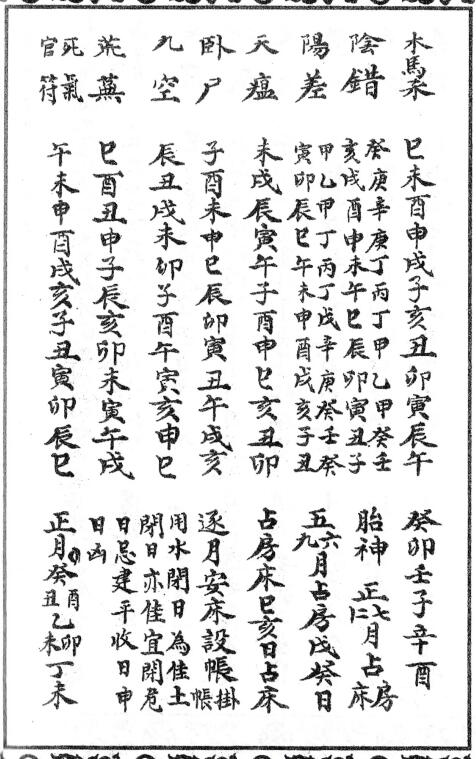 木馬杀 巳未酉申戌子亥丑卯寅辰午 癸卯壬子辛酉
陰錯 癸庚辛庚丁丙丁甲乙甲癸壬
亥戌酉申未午巳辰卯寅丑子 胎神 正七十二月占房床
陽差 甲乙甲丁丙丁戊辛庚癸壬癸
寅卯辰巳午未申酉戌亥子丑 五六九月占房戊癸日
天瘟 未戌辰寅午子酉申巳亥丑卯 占房床巳亥日占床
卧尸 子酉未申巳辰卯寅丑午戌亥 逐月安床設帳掛帳
九空 辰丑戌未卯子酉午寅亥申巳 用水閉日為佳土
閉日亦佳宜閉危
荒蕪 巳酉丑申子辰亥卯未寅午戌 日忌建平收日申
日凶
死氣官符 午未申酉戌亥子丑寅卯辰巳 正月癸酉丑乙卯未丁未